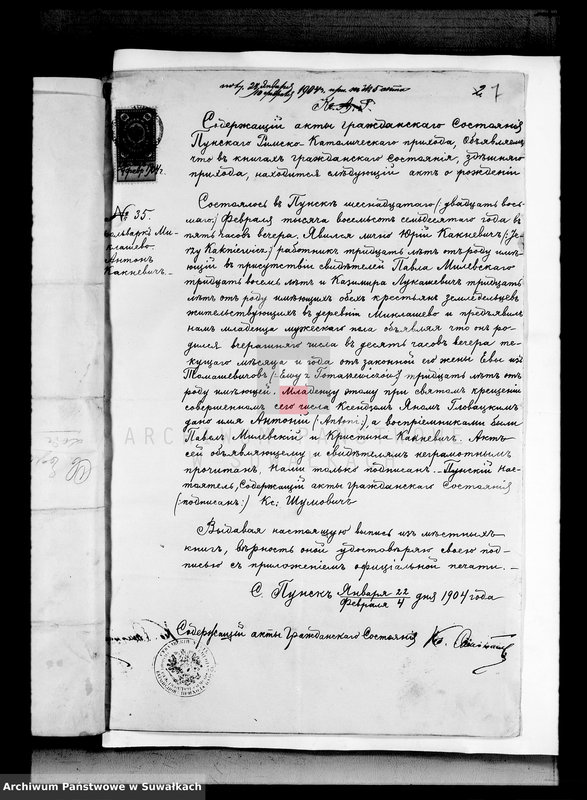 1904 г. при № 5 акта
Содержащій акты гражданскаго состоянія
Пунскаго Римско-Католическаго прихода, объявляетъ
что въ книгахъ гражданскаго состоянія, здѣшняго
прихода, находится слѣдующій актъ о рожденіи
№ 35.
Миклашево
Антонъ
Какневичъ.
Состоялось въ Пунскѣ шестнадцатаго (:двадцать вось-
маго:) Февраля тысяча восемьсотъ семидесятаго года въ
пять часовъ вечера. Явился лично Юрій Какневичъ (:Je-
rzy Kakniewicz:) работникъ тридцать лѣтъ отъ роду имѣ-
ющій въ присутствіи свидѣтелей Павла Милевскаго
тридцать восемь лѣтъ и Казимира Лукашевичъ тридцать
лѣтъ отъ роду имѣющихъ обехъ крестьянъ земледѣльцевъ
жительствующихъ въ деревнѣ Миклашево и предъявилъ
намъ младенца мужескаго пола объявляя что онъ ро-
дился вчерашняго числа въ десять часовъ вечера те-
кущаго мѣсяца и года отъ законной его жены Евы изъ
Томашевичовъ (:Ewy z Tomaszewiczów:) тридцать лѣтъ отъ
роду имѣющей. Младенцу этому при святомъ крещеніи
совершенномъ сего числа Ксендзомъ Яномъ Гловацкимъ
дано имя Антоній (:Antoni:), а воспреемниками были
Павелъ Милевскій и Кристина Какневичъ. Актъ
сей объявляющему и свидѣтелямъ неграмотнымъ
прочитанъ, Нами только подписанъ. – Пунскій Нас-
тоятель, Содержащій акты гражданскаго состоянія
(:подписанъ:) Кс: Шумовичъ
Выдавая настоящую выпись изъ мѣстныхъ
книгъ, вѣрность оной удостовѣряю своею под-
писью съ приложеніемъ официальной печати. –
С. Пунскъ Января 22 / Февраля 4 дня 1904 года
Содержащій акты Гражданскаго Состоянія Кс.
Archiwum Państwowe w Suwałkach